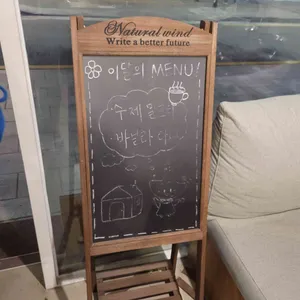 Natural wind
Write a better future
이달의 MENU!
수제
바닐라